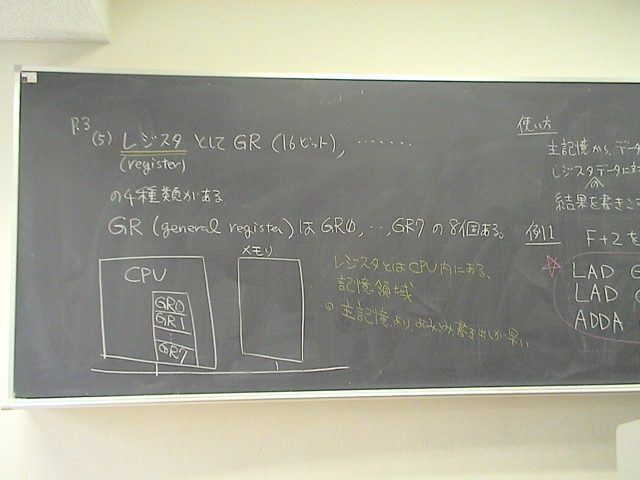 P.3
(5) レジスタ として GR (16ビット), ‥‥‥
(register)
の4種類がある
GR (general register) は GR0, ‥, GR7 の 8個ある。
CPU
GR0
GR1
GR7
メモリ
レジスタとはCPU内にある、
記憶領域
主記憶より よみこみ、書き出しが早い
使い方
主記憶から、データ
レジスタデータに対
の
結果を書きこ
例1 F+2を
LAD G
LAD G
ADDA